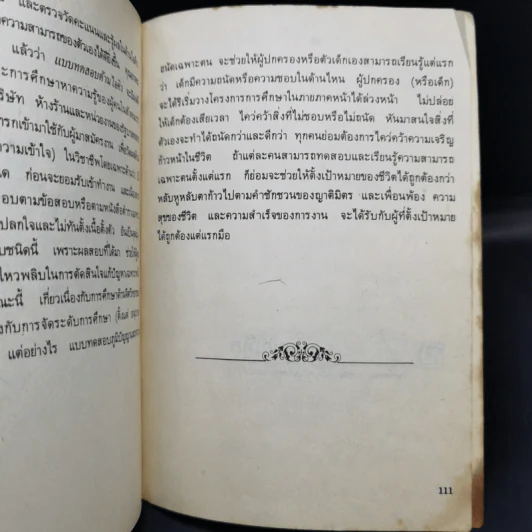 และตรวจวัดคะแนนและรู้ผลในด้าน
ความสามารถของตัวเองได้ดียิ่งขึ้น
แล้วว่า แบบทดสอบ
ะการศึกษาหาความรู้ของผู้คน
ริษัท ห้างร้านและหน่วยงานของรัฐบาล
ารถเข้ามาใช้กับผู้มาสมัครงาน
ความเข้าใจ) ในวิชาชีพโดยเฉพาะ
ด ก่อนจะยอมรับเข้าทำงาน
อบตามข้อสอบหรือตามหนังสือ
ปลกใจและไม่ทันตั้งเนื้อตั้งตัว
บชนิดนี้ เพราะผลสอบที่ได้มา
ไหวพริบในการตัดสินใจแก้ปัญหา
ณะนี้ เกี่ยวเนื่องกับการศึกษา
งกับการจัดระดับการศึกษา (ตั้งแต่
แต่อย่างไร แบบทดสอบภูมิปัญญา
ถนัดเฉพาะคน จะช่วยให้ผู้ปกครองหรือตัวเด็กเองสามารถเรียนรู้แต่แรก
ว่า เด็กมีความถนัดหรือความชอบในด้านไหน ผู้ปกครอง (หรือเด็ก)
จะได้ริเริ่มวางโครงการการศึกษาในภายภาคหน้าได้ล่วงหน้า ไม่ปล่อย
ให้เด็กต้องเสียเวลา ไคว่คว้าสิ่งที่ไม่ชอบหรือไม่ถนัด หันมาสนใจสิ่งที่
ตัวเองจะทำได้ถนัดกว่าและดีกว่า ทุกคนย่อมต้องการไคว่คว้าความเจริญ
ก้าวหน้าในชีวิต ถ้าแต่ละคนสามารถทดสอบและเรียนรู้ความสามารถ
เฉพาะตนตั้งแต่แรก ก็ย่อมจะช่วยให้ตั้งเป้าหมายของชีวิตได้ถูกต้องกว่า
หลับหูหลับตาก้าวไปตามคำชักชวนของญาติมิตร และเพื่อนพ้อง ความ
สุขของชีวิต และความสำเร็จของการงาน จะได้รับกับผู้ที่ตั้งเป้าหมาย
ได้ถูกต้องแต่แรกมือ
111